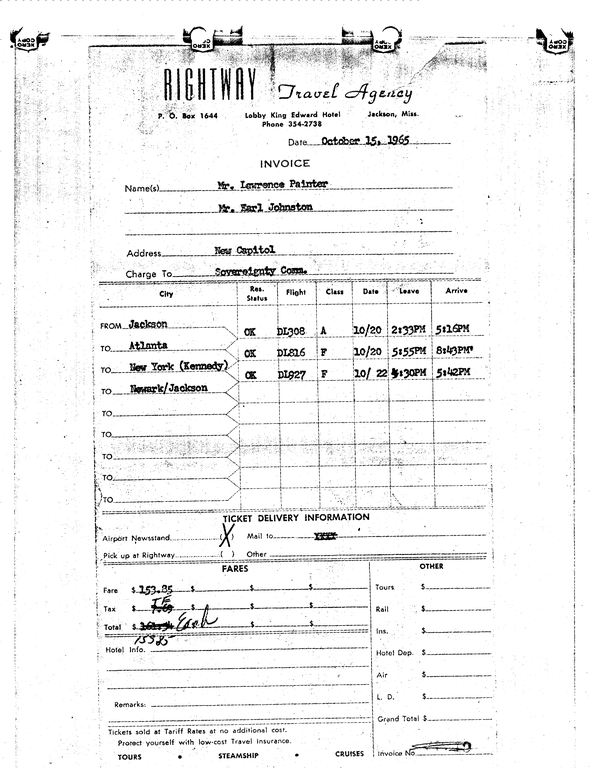 XERO COPY
XERO COPY
XERO COPY
XERO COPY
RIGHTWAY Travel Agency
P. O. Box 1644 Lobby King Edward Hotel Jackson, Miss.
Phone 354-2738
Date October 15, 1965
INVOICE
Name(s) Mr. Lawrence Painter
Mr. Earl Johnston
Address New Capitol
Charge To Sovereignty Comm.
City Res. Status Flight Class Date Leave Arrive
FROM Jackson OK DL308 A 10/20 2:33PM 5:16PM
TO Atlanta OK DL816 F 10/20 5:55PM 8:43PM
TO New York (Kennedy) OK DL927 F 10/ 22 :30PM 5:42PM
TO Newark/Jackson
TO
TO
TO
TO
TO
TICKET DELIVERY INFORMATION
Airport Newsstand (X) Mail to
Pick up at Rightway ( ) Other
FARES OTHER
Fare $ 153.85 $ $ $ Tours $
Tax $ TE $ $ $ Rail $
Total $ Each $ $ Ins. $
153 85
Hotel Info. Hotel Dep. $
Air $
Remarks: L. D. $
Grand Total $
Tickets sold at Tariff Rates at no additional cost.
Protect yourself with low-cost Travel insurance.
TOURS • STEAMSHIP • CRUISES Invoice No